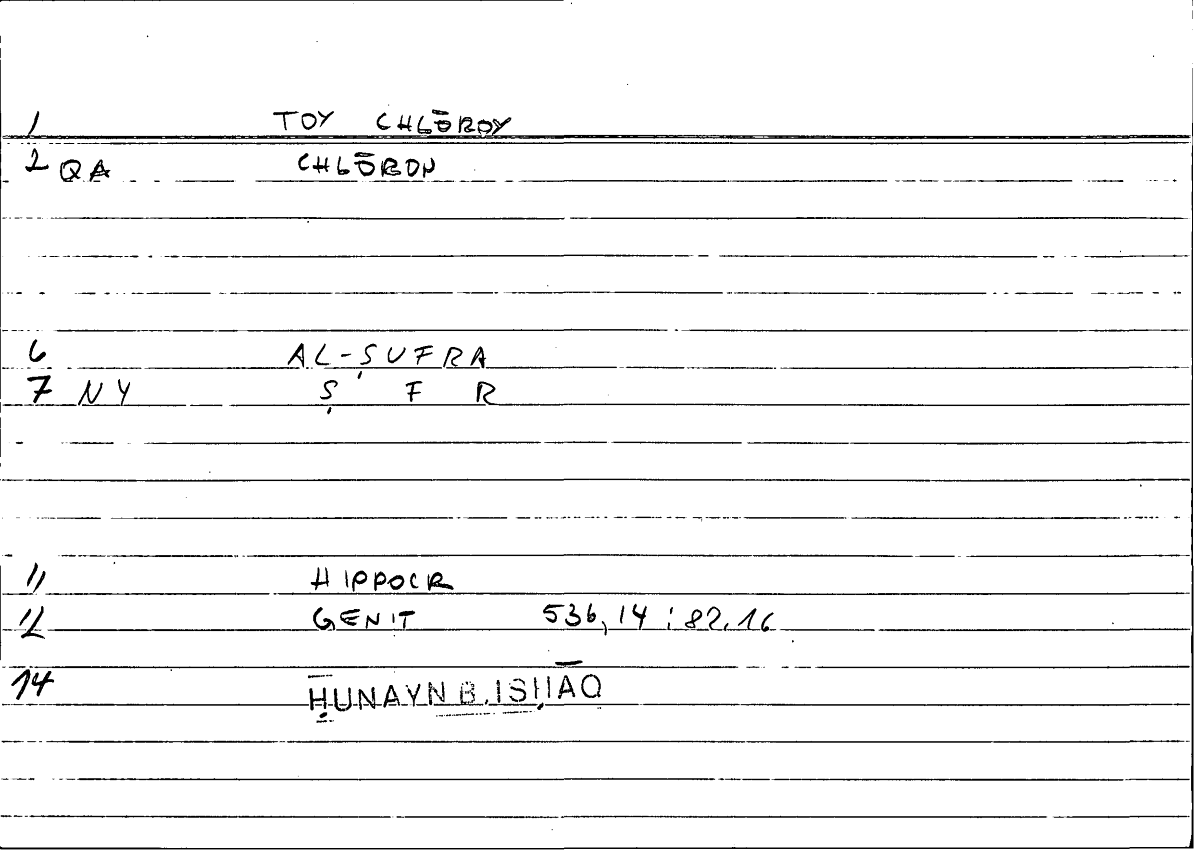 1 TOY CHLŌROY
2 QA CHLŌRON
6 AL-ṢUFRA
7 NY Ṣ F R
11 HIPPOCR
12 GENIT 536,14 : 82.16
14 ḤUNAYN B. ISḤĀQ